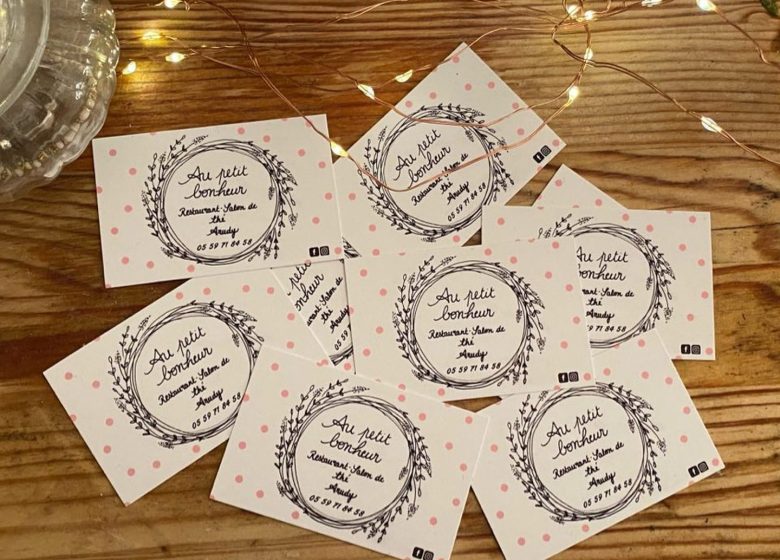 Au petit
bonheur
Restaurant-Salon de
thé
Arudy
05 59 71 84 58
Au petit
bonheur
Restaurant-Salon de
thé
Arudy
05 59 71 84 58
petit
bonheur
Restaurant-Salon de
thé
Arudy
05 59 71 84 58
Au petit
bonheur
Restaurant-Salon de
thé
Arudy
05 59 71 84 58
Au petit
bonheur
Restaurant-Salon de
thé
Arudy
05 59 71 84 58
Au petit
bonheur
Restaurant-Salon de
thé
Arudy
05 59 71 84 58
Au petit
bonheur
Restaurant-Salon de
thé
Arudy
05 59 71 84 58